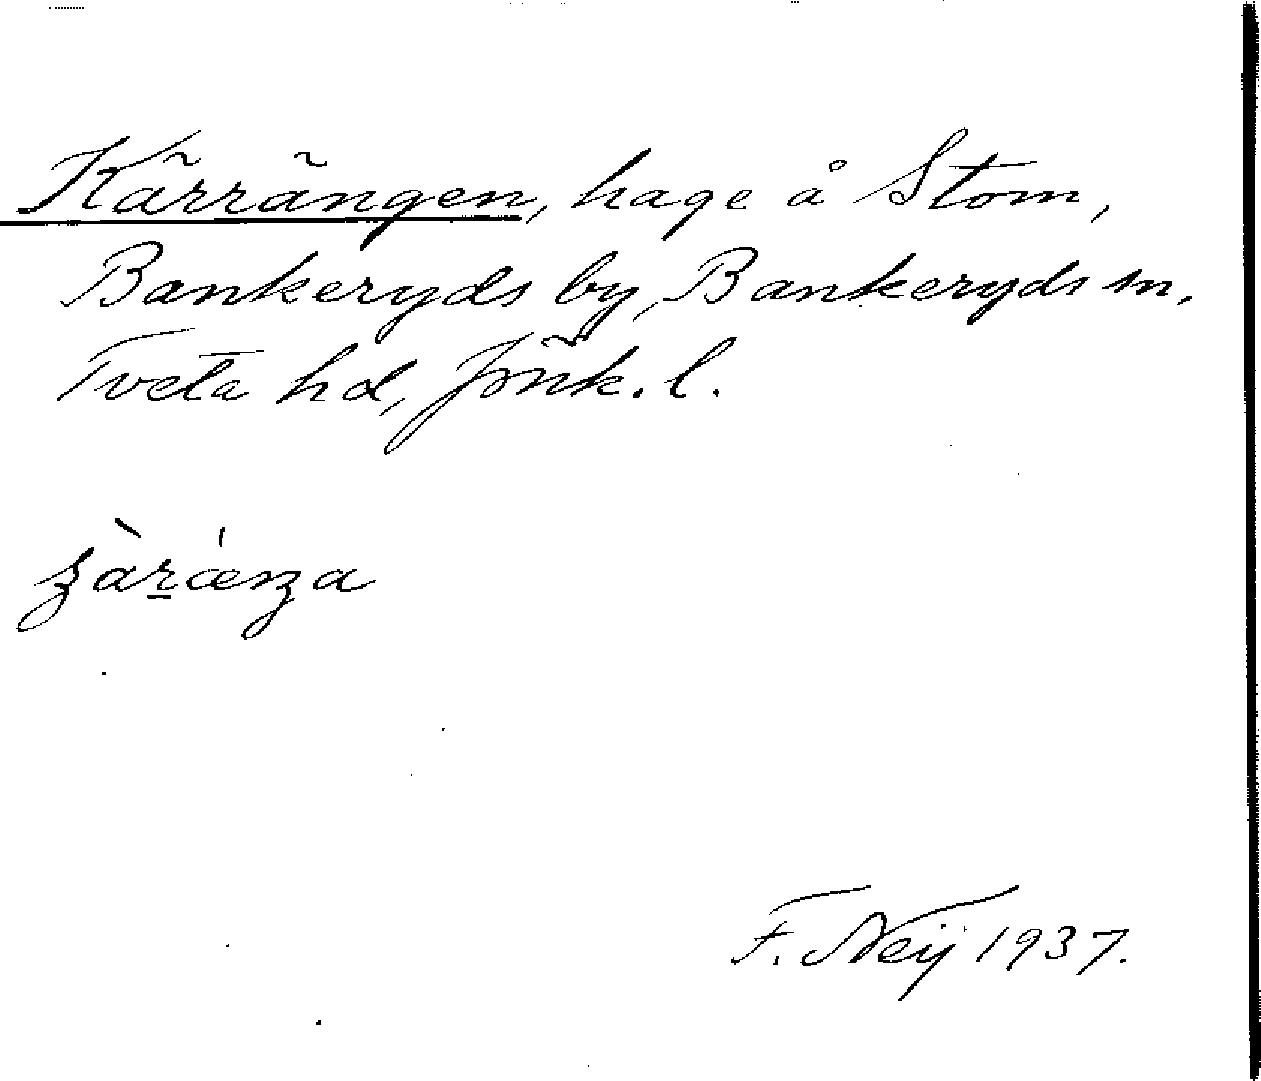 Kärrängen, hage å Stom,
Bankeryds by, Bankeryds sn,
Tveta hd, Jönk. l.
F. Neij 1937.